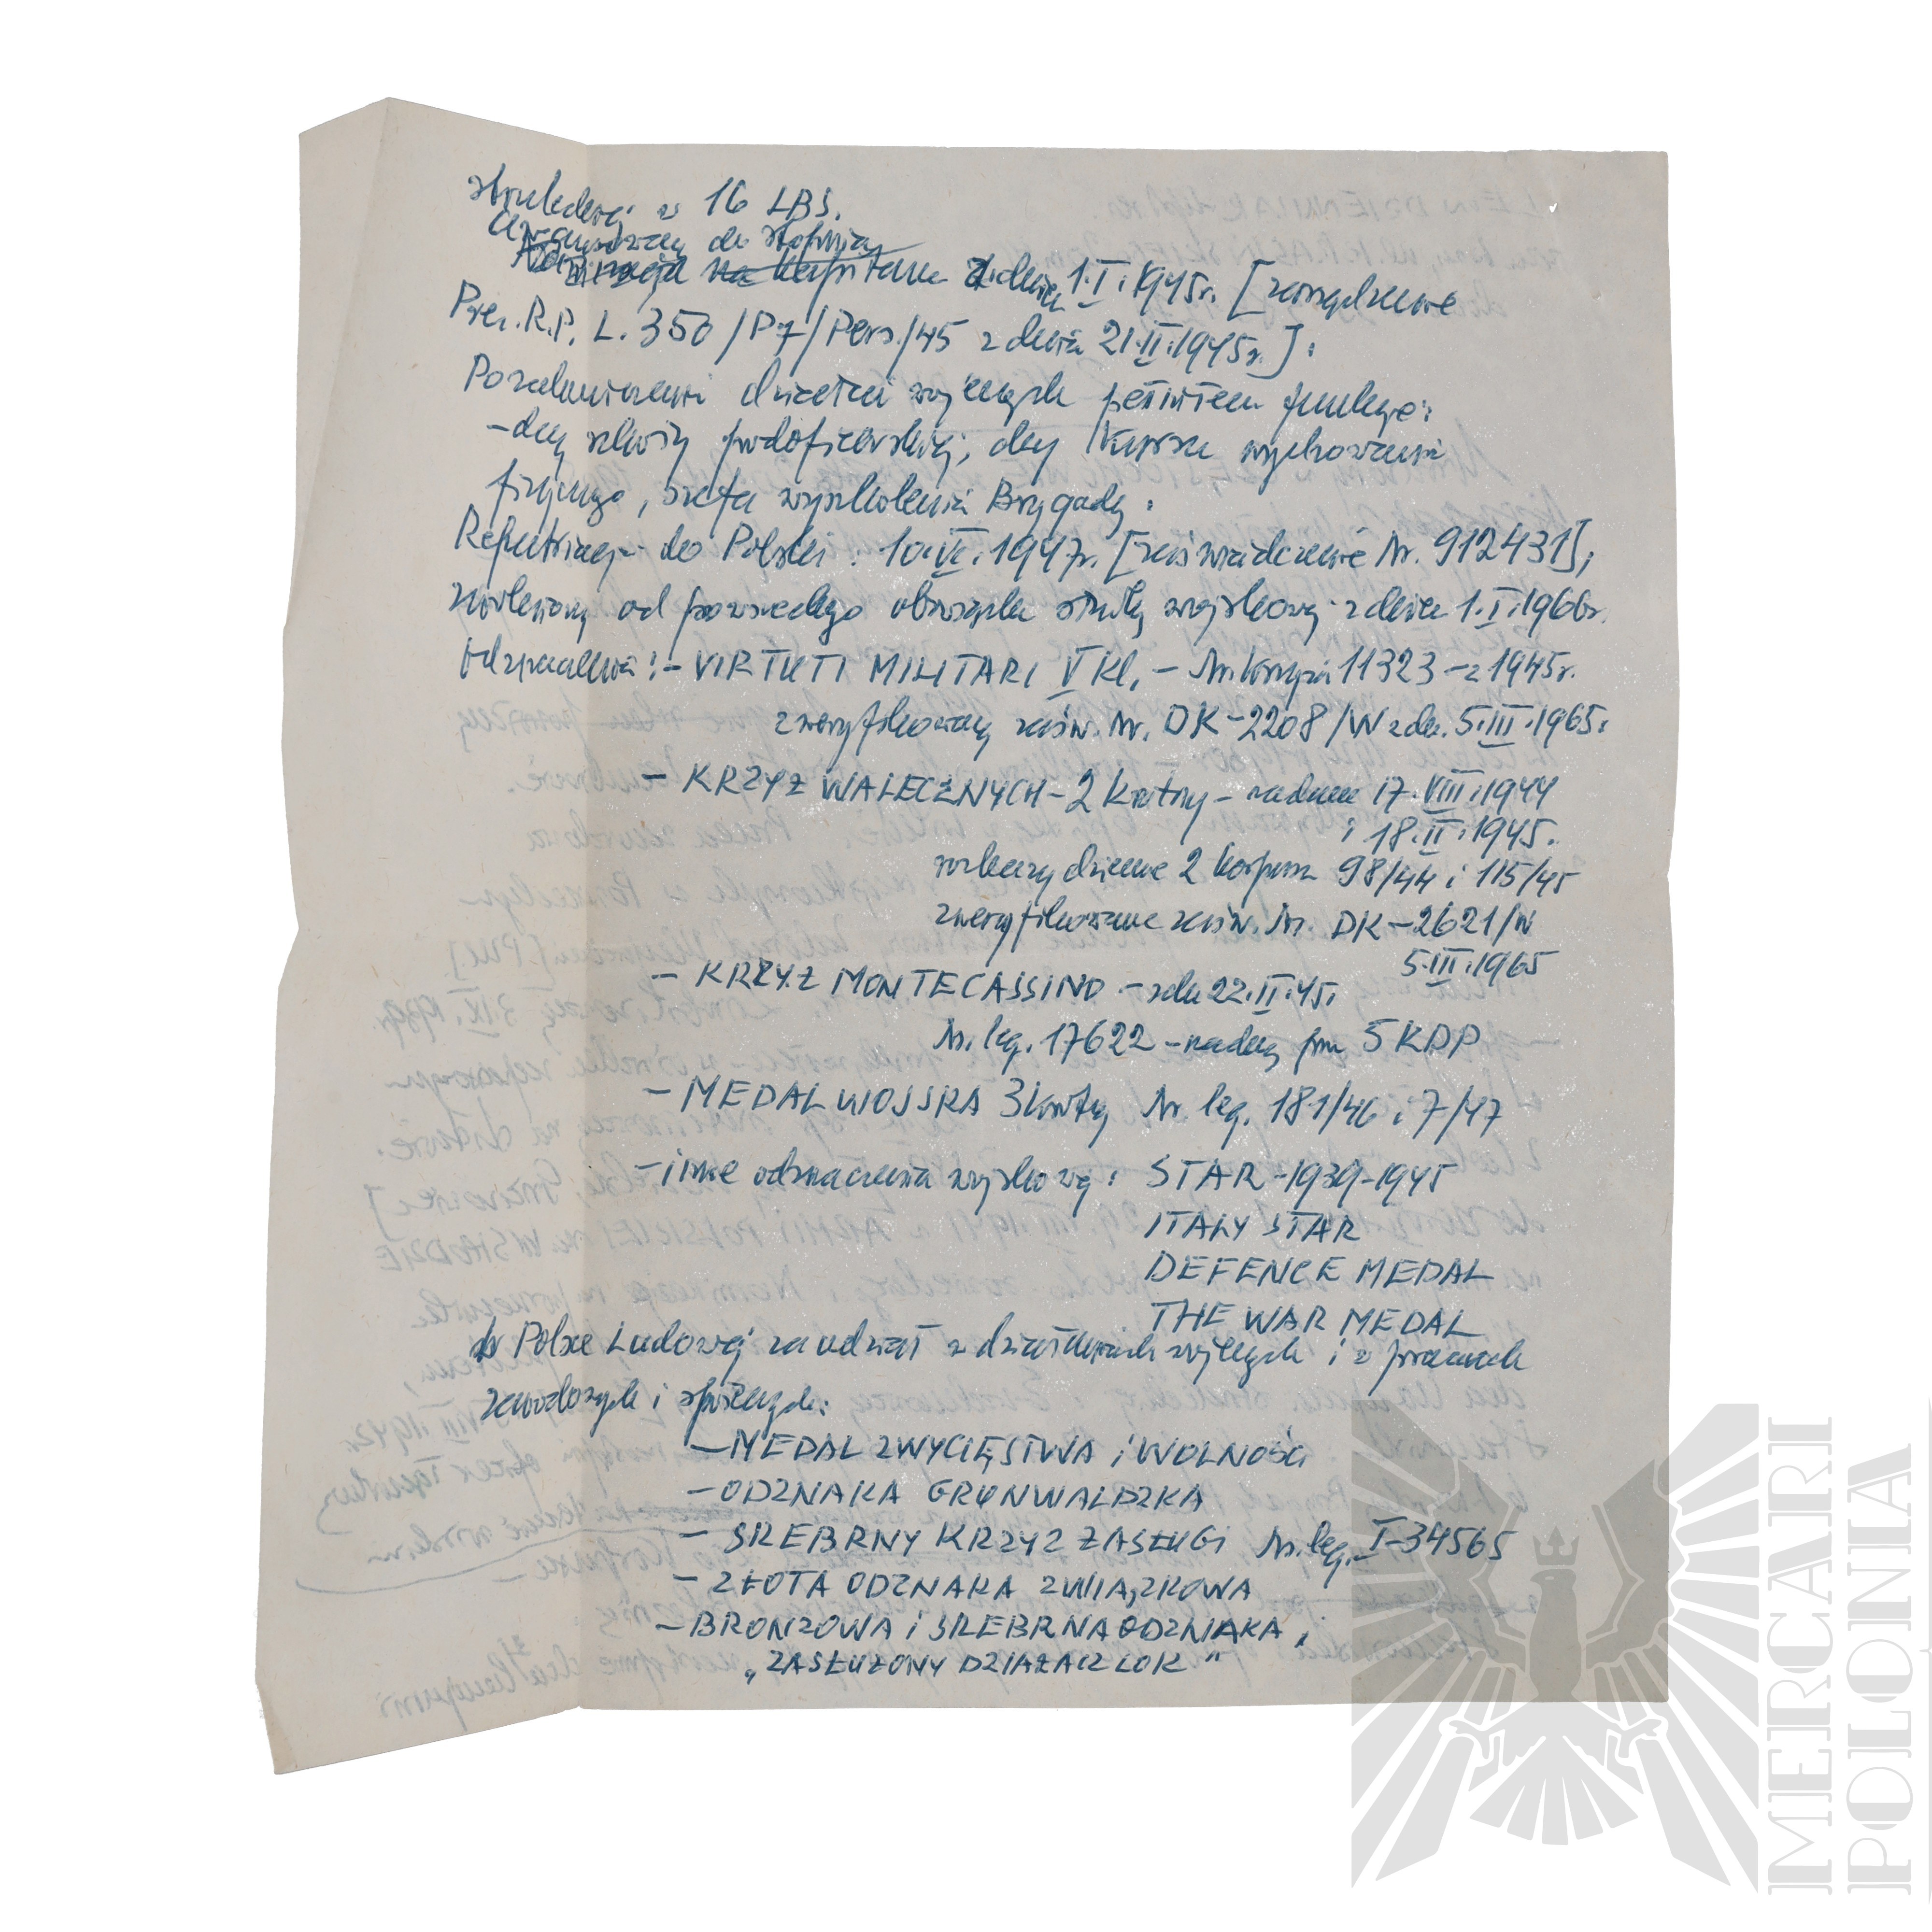 strzeleckiej w 16 LBS.
Awansowany do stopnia
Nominacja na kapitana z dniem 1.I.1945r. [zarządzenie
Prez. R.P. L. 350/P7/Pers./45 z dnia 21.II.1945r.].
Poza działaniami wojennych pełniłem funkcje:
-dcy szkoły podoficerskiej, dcy kursu wychowania
fizycznego, szefa wyszkolenia Brygady.
Repatriacja do Polski: 10.VI.1947r. [zaświadczenie Nr. 912431],
zwolniony od powszechnego obowiązku służby wojskowej z dniem 1.I.1966r.
Odznaczenia: - VIRTUTI MILITARI V Kl. - Nr. krzyża 11323 - z 1945r.
zweryfikowany zaśw. Nr. DK-2208/W z dn. 5.III.1965.
- KRZYŻ WALECZNYCH - 2 krotny - nadane 17.VIII.1944
i 18.II.1945.
rozkazy dzienne 2 korpusu 98/44 i 115/45
zweryfikowane zaśw. Nr. DK-2621/W
5.III.1965
- KRZYŻ MONTECASSINO - z dn 22.II.45.
Nr. leg. 17622 - nadany prze 5 KDP
- MEDAL WOJSKA 3 krotny Nr. leg. 181/46 i 7/47
- inne odznaczenia wojskowe: STAR-1939-1945
ITALY STAR
DEFENCE MEDAL
THE WAR MEDAL
W Polsce Ludowej za udział w działaniach wojennych i w pracach
zawodowych i społecznych:
- MEDAL ZWYCIĘSTWA i WOLNOŚCI
- ODZNAKA GRUNWALDZKA
- SREBRNY KRZYŻ ZASŁUGI Nr. leg. I-34565
- ZŁOTA ODZNAKA ZWIĄZKOWA
- BRONZOWA i SREBRNA ODZNAKA,
„ZASŁUŻONY DZIAŁACZ LOK"
MERCARI
POLONIA